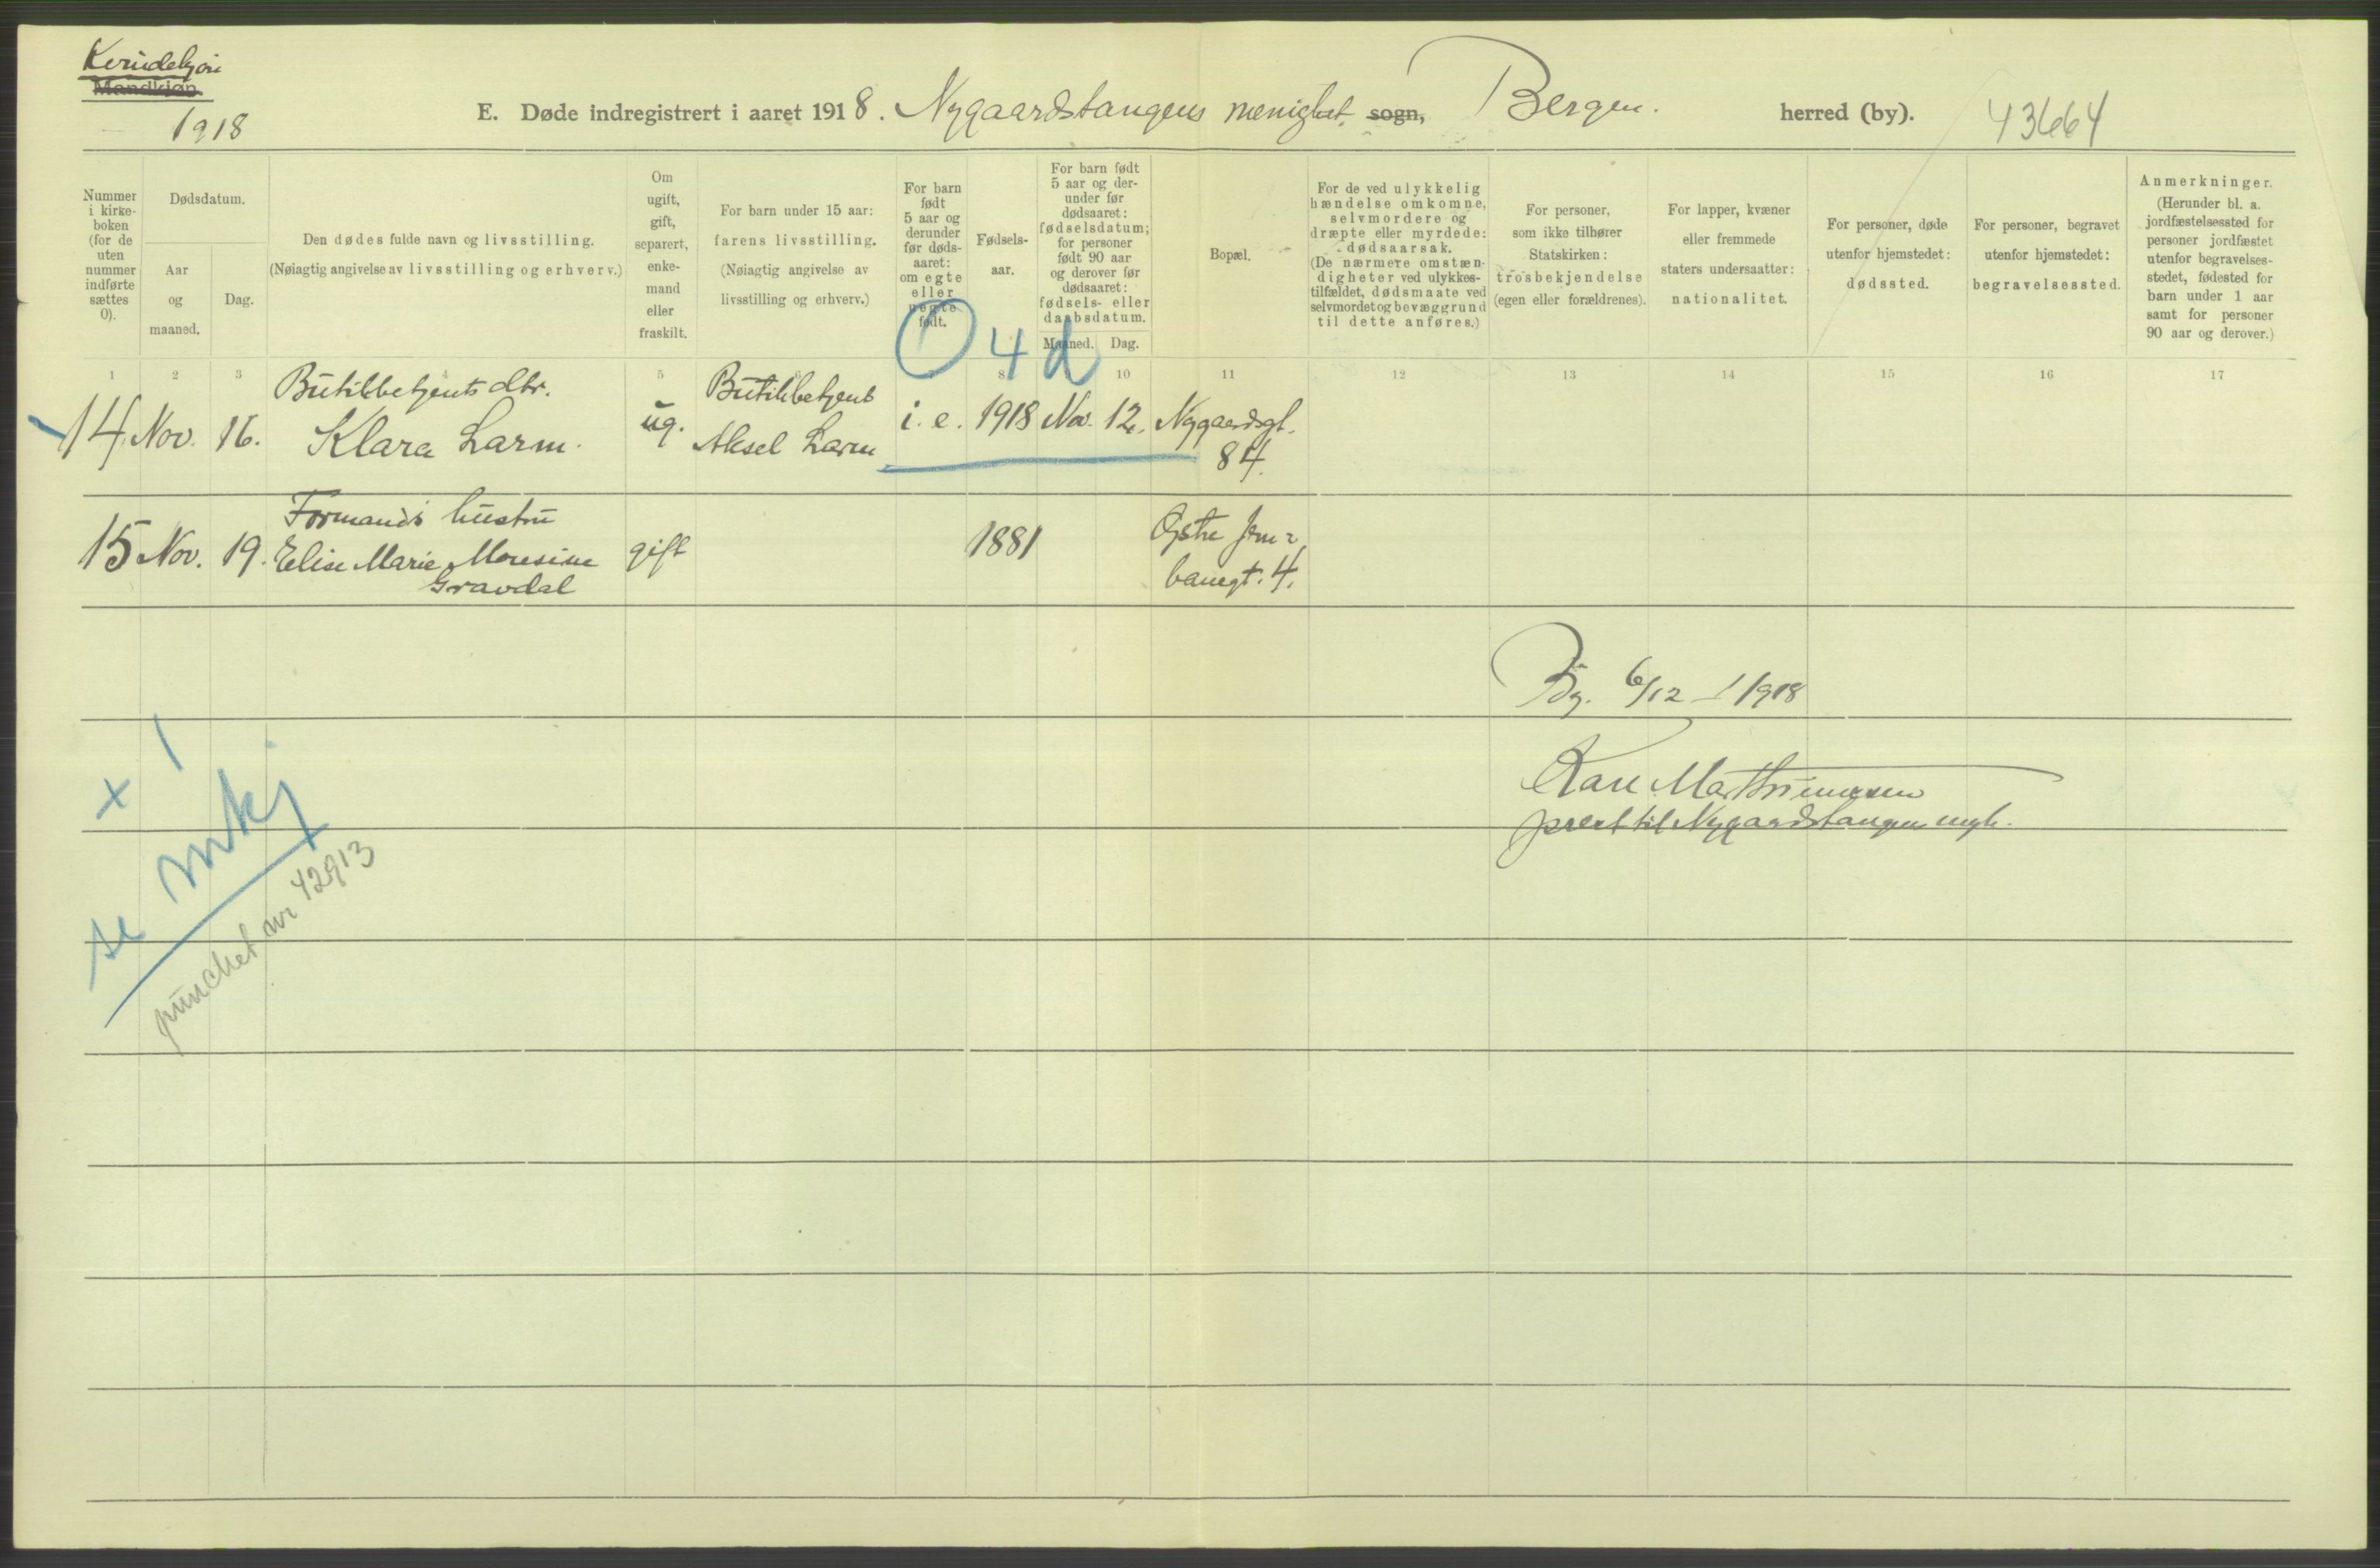 Kvindekjøn
Mandkjøn
1918
E. Døde indregistrert i aaret 1918. Nygaardstangens menighet sogn, Bergen. herred (by). 43664
Nummer i kirke-boken (for de uten nummer indførte sættes 0).
Dødsdatum.
Aar og maaned.
Dag.
Den dødes fulde navn og livsstilling.
(Nøiagtig angivelse av livsstilling og erhverv.)
Om ugift, gift, separert, enke-mand eller fraskilt.
For barn under 15 aar:
farens livsstilling.
(Nøiagtig angivelse av livsstilling og erhverv.)
For barn født 5 aar og derunder før døds-aaret: om egte eller uegte født.
Fødsels-aar.
For barn født 5 aar og der-under før dødsaaret: fødselsdatum; for personer født 90 aar og derover før dødsaaret: fødsels- eller daabsdatum.
Maaned. Dag.
Bopæl.
For de ved ulykkelig hændelse omkomne, selvmordere og dræpte eller myrdede: dødsaarsak. (De nærmere omstæn-digheter ved ulykkes-tilfældet, dødsmaate ved selvmordet og bevæggrund til dette anføres.)
For personer, som ikke tilhører Statskirken: trosbekjendelse (egen eller forældrenes).
For lapper, kvæner eller fremmede staters undersaatter: nationalitet.
For personer, døde utenfor hjemstedet: dødssted.
For personer, begravet utenfor hjemstedet: begravelsessted.
Anmerkninger. (Herunder bl. a. jordfæstelsessted for personer jordfæstet utenfor begravelses-stedet, fødested for barn under 1 aar samt for personer 90 aar og derover.)
4 d
1 2 3 4 5 8 10 11 12 13 14 15 16 17
Butikbetjents dtr. Butikbetjent
14. Nov. 16. Klara Larm. ug. Aksel Larm i. e. 1918 Nov. 12. Nygaardsgt.
84.
Formands hustru
15 Nov. 19. Elise Marie Monsine gift 1881 Østre Jern
Gravdal banegt. 4.
Bg. 6/12 - 1918
prest til Nygaardstangen mgh.
x 1
se mkj
punchet nr 42913